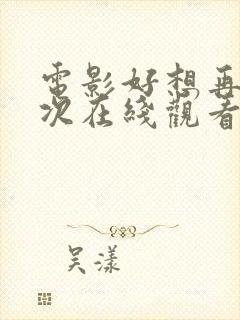 電影好想再
次在綫觀看
吴漾